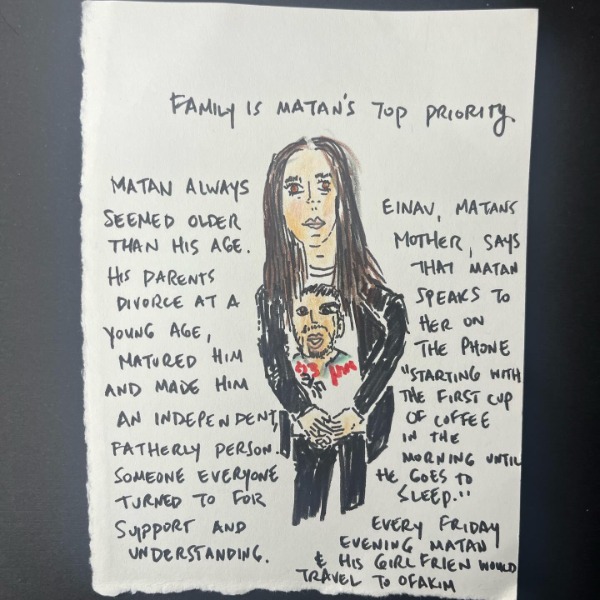 FAMILY IS MATAN'S TOP PRIORITY
MATAN ALWAYS
SEEMED OLDER
THAN HIS AGE.
HIS PARENTS
DIVORCE AT A
YOUNG AGE,
MATURED HIM
AND MADE HIM
AN INDEPENDENT,
FATHERLY PERSON.
SOMEONE EVERYONE
TURNED TO FOR
SUPPORT AND
UNDERSTANDING.
EINAV, MATANS
MOTHER, SAYS
THAT MATAN
SPEAKS TO
HER ON
THE PHONE
"STARTING WITH
THE FIRST CUP
OF COFFEE
IN THE
MORNING UNTIL
HE GOES TO
SLEEP."
EVERY FRIDAY
EVENING MATAN
& HIS GIRLFRIEN WOULD
TRAVEL TO OFAKIM